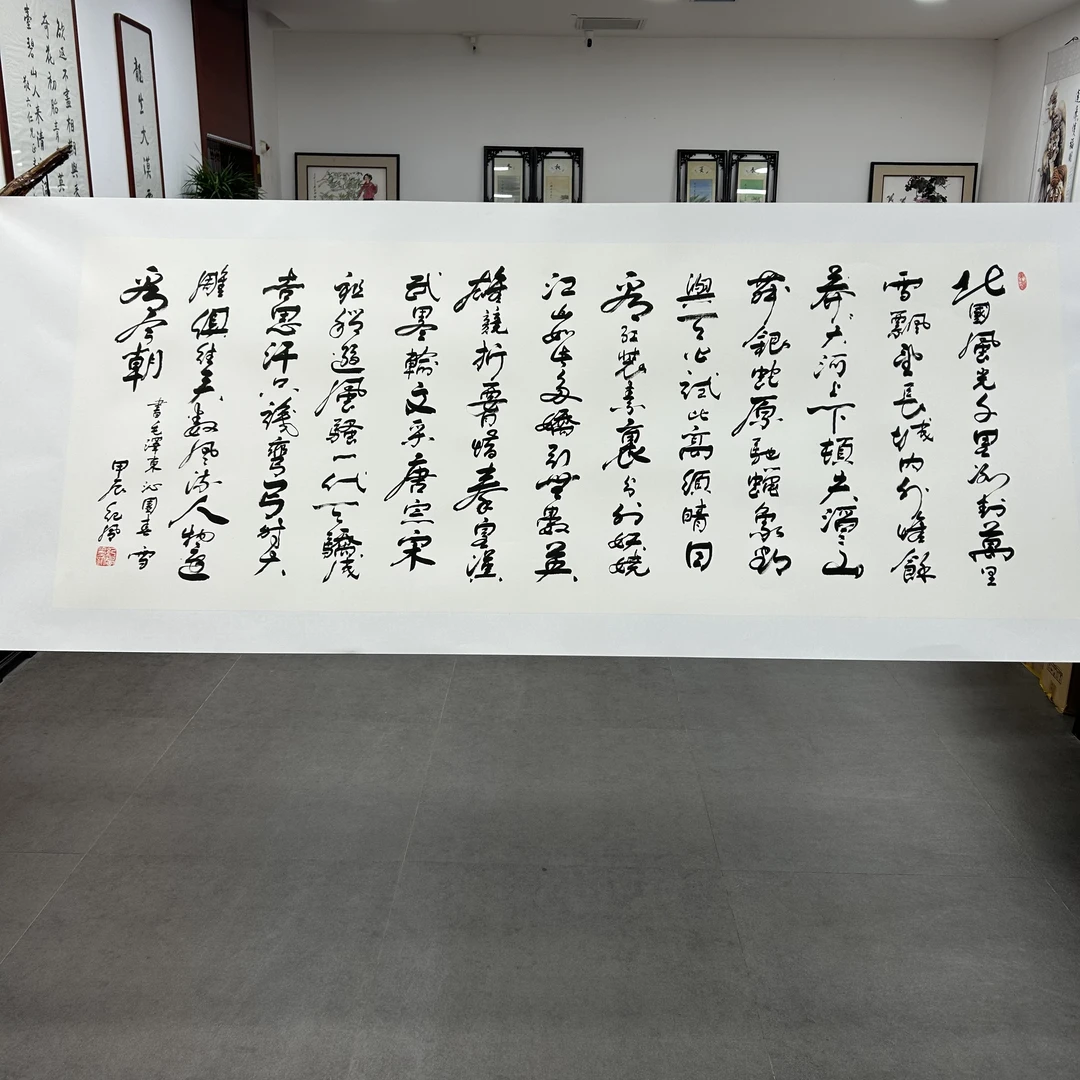 北國風光千里冰封萬里
雪飄望長城內外惟餘
莽々大河上下頓失滔々山
舞銀蛇原馳蠟象欲
與天公試比高須晴日
看紅裝素裹分外妖嬈
江山如此多嬌引無數英
雄競折腰惜秦皇漢
武略輸文采唐宗宋
祖稍遜風騷一代天驕成
吉思汗只識彎弓射大
雕俱往矣數風流人物還
看今朝
書毛澤東沁園春雪
甲辰
龍生大漠